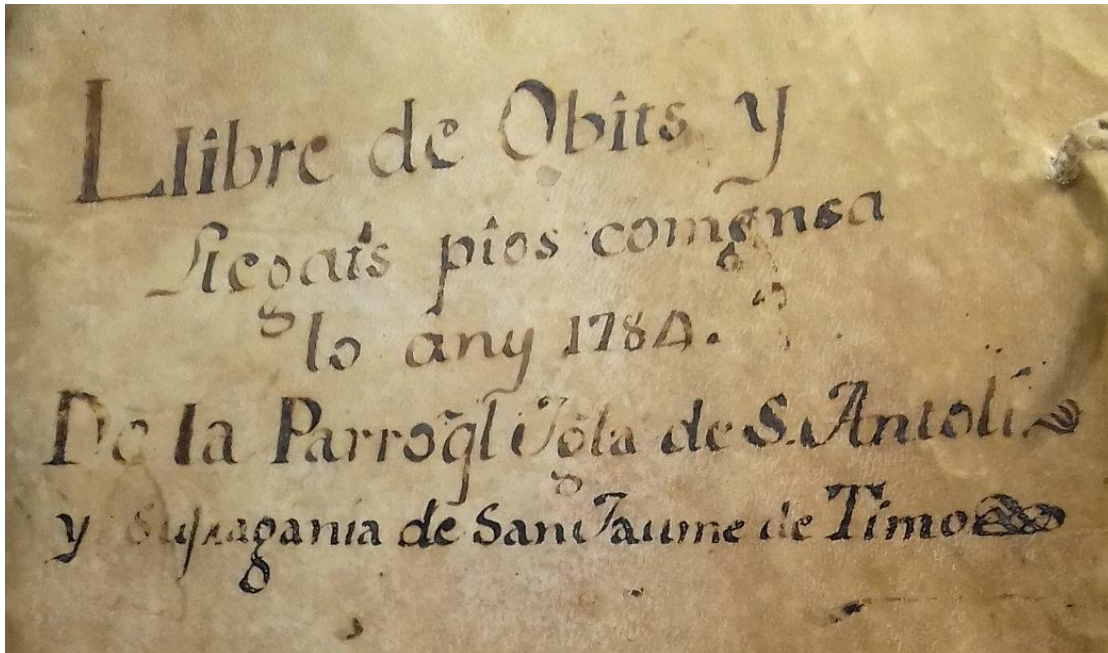 Llibre de Obits y
Llegats pios comensa
lo any 1784.
De la Parroql Igla de S. Antoli
y sufragania de Sant Jaume de Timo